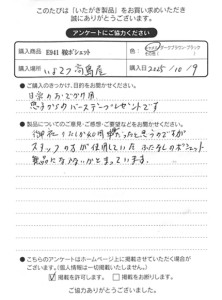 このたびは「いたがき製品」をお買い求めいただき
誠にありがとうございます。
アンケートにご協力ください
購入商品 E941 鞍ポシェット 色：ダークブラウン・ブラック
その他（ ）
購入場所 いよてつ高島屋 購入日 2025/10/9
●ご購入のきっかけ、目的をお聞かせください。
日常のおでかけ用
息子からのバースデープレゼントです
●製品についてのご意見・ご感想・ご要望などをお聞かせください。
スタッフの方が使用していた ふたなしのポシェット
製品にならないかと まっています。
●こちらのアンケートはホームページ上に掲載させていただく場合が
ございます。（個人情報は一切掲載いたしません。）
掲載を許可します □お断りします
ご協力ありがとうございました。